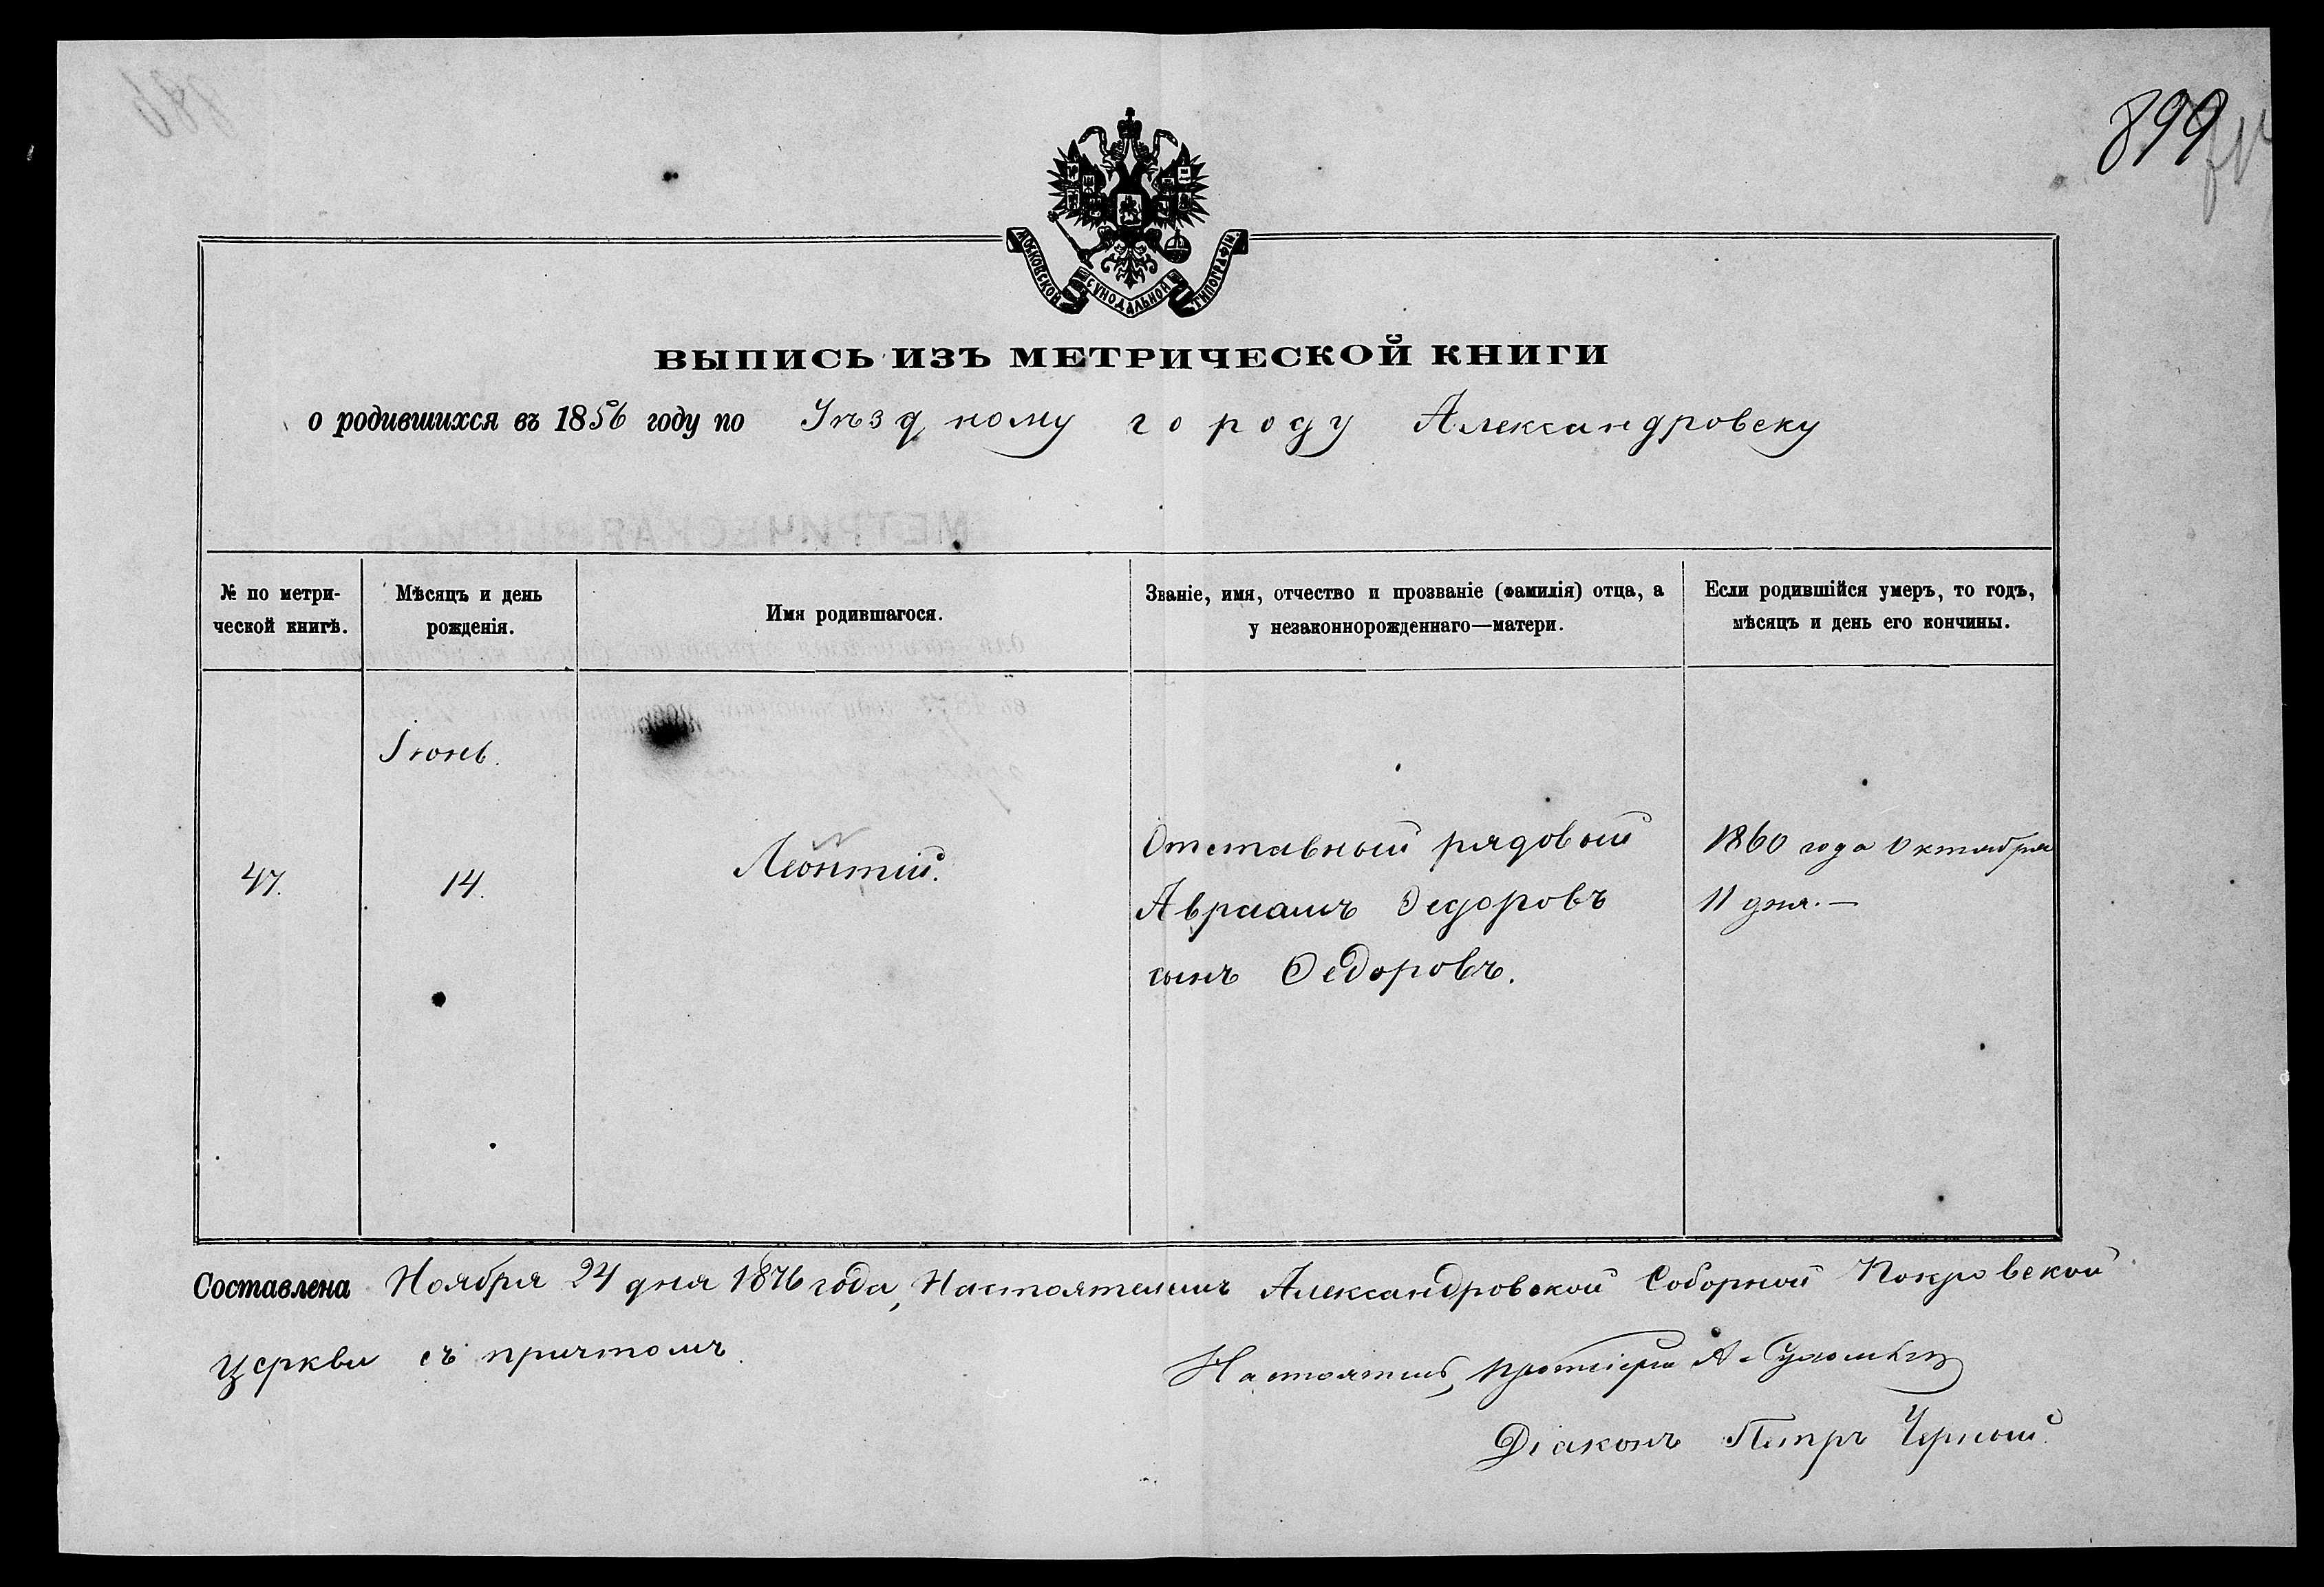 899
МОСКОВСКОЙ СѴНОДАЛЬНОЙ ТИПОГРАФІИ.
ВЫПИСЬ ИЗЪ МЕТРИЧЕСКОЙ КНИГИ
о родившихся въ 1856 году по Уѣздному городу Александровску
№ по метри-
ческой книгѣ.
Мѣсяцъ и день
рожденія.
Имя родившагося.
Званіе, имя, отчество и прозваніе (фамилія) отца, а
у незаконнорожденнаго—матери.
Если родившійся умеръ, то годъ,
мѣсяцъ и день его кончины.
Іюнь.
47.
14.
Леонтій.
Отставный рядовый
Авраамъ Федоровъ
сынъ Федоровъ.
1860 года Октября
11 дня.—
Составлена Ноября 24 дня 1876 года, Настоятелемъ Александровской Соборной Покровской
Церкви съ причтомъ.
Настоятель, протоіерей А.
Діаконъ Петръ Черный.